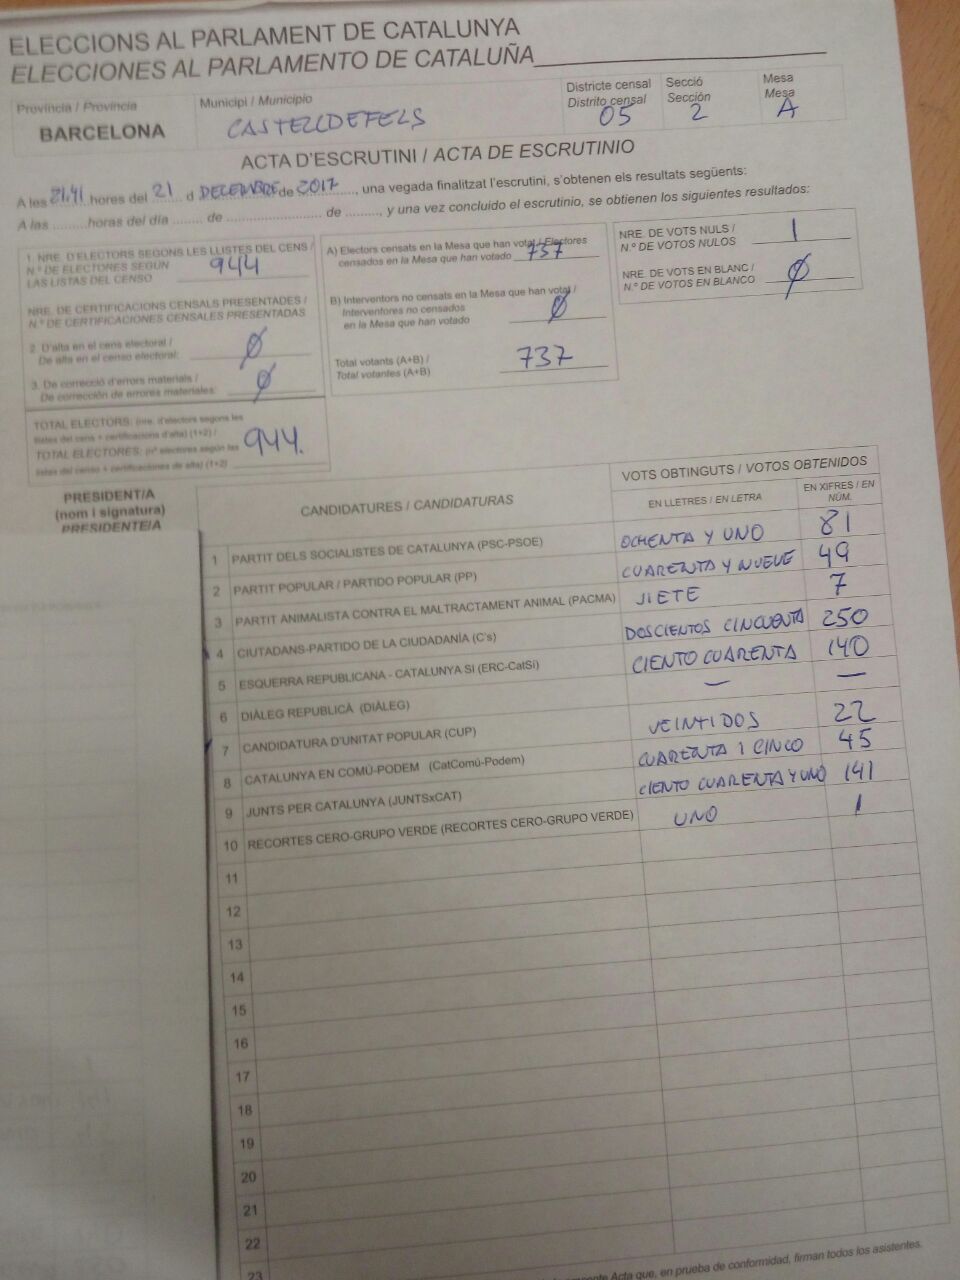 ELECCIONS AL PARLAMENT DE CATALUNYA
ELECCIONES AL PARLAMENTO DE CATALUÑA
Província / Provincia
BARCELONA
Municipi / Municipio
CASTELLDEFELS
Districte censal
Distrito censal
05
Secció
Sección
2
Mesa
Mesa
A
ACTA D'ESCRUTINI / ACTA DE ESCRUTINIO
A les 21,41 hores del 21 d DECEMBRE de 2017, una vegada finalitzat l'escrutini, s'obtenen els resultats següents:
A las ......... horas del día ........ de .......................... de ........., y una vez concluido el escrutinio, se obtienen los siguientes resultados:
1. NRE. D'ELECTORS SEGONS LES LLISTES DEL CENS /
N.º DE ELECTORES SEGÚN
LAS LISTAS DEL CENSO
944
NRE. DE CERTIFICACIONS CENSALS PRESENTADES /
N.º DE CERTIFICACIONES CENSALES PRESENTADAS
2. D'alta en el cens electoral /
De alta en el censo electoral:
0
3. De correcció d'errors materials /
De corrección de errores materiales:
0
TOTAL ELECTORS: (nre. d'electors segons les
llistes del cens + certificacions d'alta) (1+2) /
TOTAL ELECTORES: (nº electores según las
listas del censo + certificaciones de alta) (1+2)
944.
A) Electors censats en la Mesa que han votat / Electores
censados en la Mesa que han votado
737
B) Interventors no censats en la Mesa que han votat /
Interventores no censados
en la Mesa que han votado
0
Total votants (A+B) /
Total votantes (A+B)
737
NRE. DE VOTS NULS /
N.º DE VOTOS NULOS
1
NRE. DE VOTS EN BLANC /
N.º DE VOTOS EN BLANCO
0
PRESIDENT/A
(nom i signatura)
PRESIDENTE/A
CANDIDATURES / CANDIDATURAS
VOTS OBTINGUTS / VOTOS OBTENIDOS
EN LLETRES / EN LETRA
EN XIFRES / EN NÚM.
1 PARTIT DELS SOCIALISTES DE CATALUNYA (PSC-PSOE) OCHENTA Y UNO 81
2 PARTIT POPULAR / PARTIDO POPULAR (PP) CUARENTA Y NUEVE 49
3 PARTIT ANIMALISTA CONTRA EL MALTRACTAMENT ANIMAL (PACMA) SIETE 7
4 CIUTADANS-PARTIDO DE LA CIUDADANÍA (C's) DOSCIENTOS CINCUENTA 250
5 ESQUERRA REPUBLICANA - CATALUNYA SI (ERC-CatSí) CIENTO CUARENTA 140
6 DIÀLEG REPUBLICÀ (DIÀLEG) — —
7 CANDIDATURA D'UNITAT POPULAR (CUP) VEINTIDOS 22
8 CATALUNYA EN COMÚ-PODEM (CatComú-Podem) CUARENTA I CINCO 45
9 JUNTS PER CATALUNYA (JUNTSxCAT) CIENTO CUARENTA Y UNO 141
10 RECORTES CERO-GRUPO VERDE (RECORTES CERO-GRUPO VERDE) UNO 1
11
12
13
14
15
16
17
18
19
20
21
22
23
Acta que, en prueba de conformidad, firman todos los asistentes.